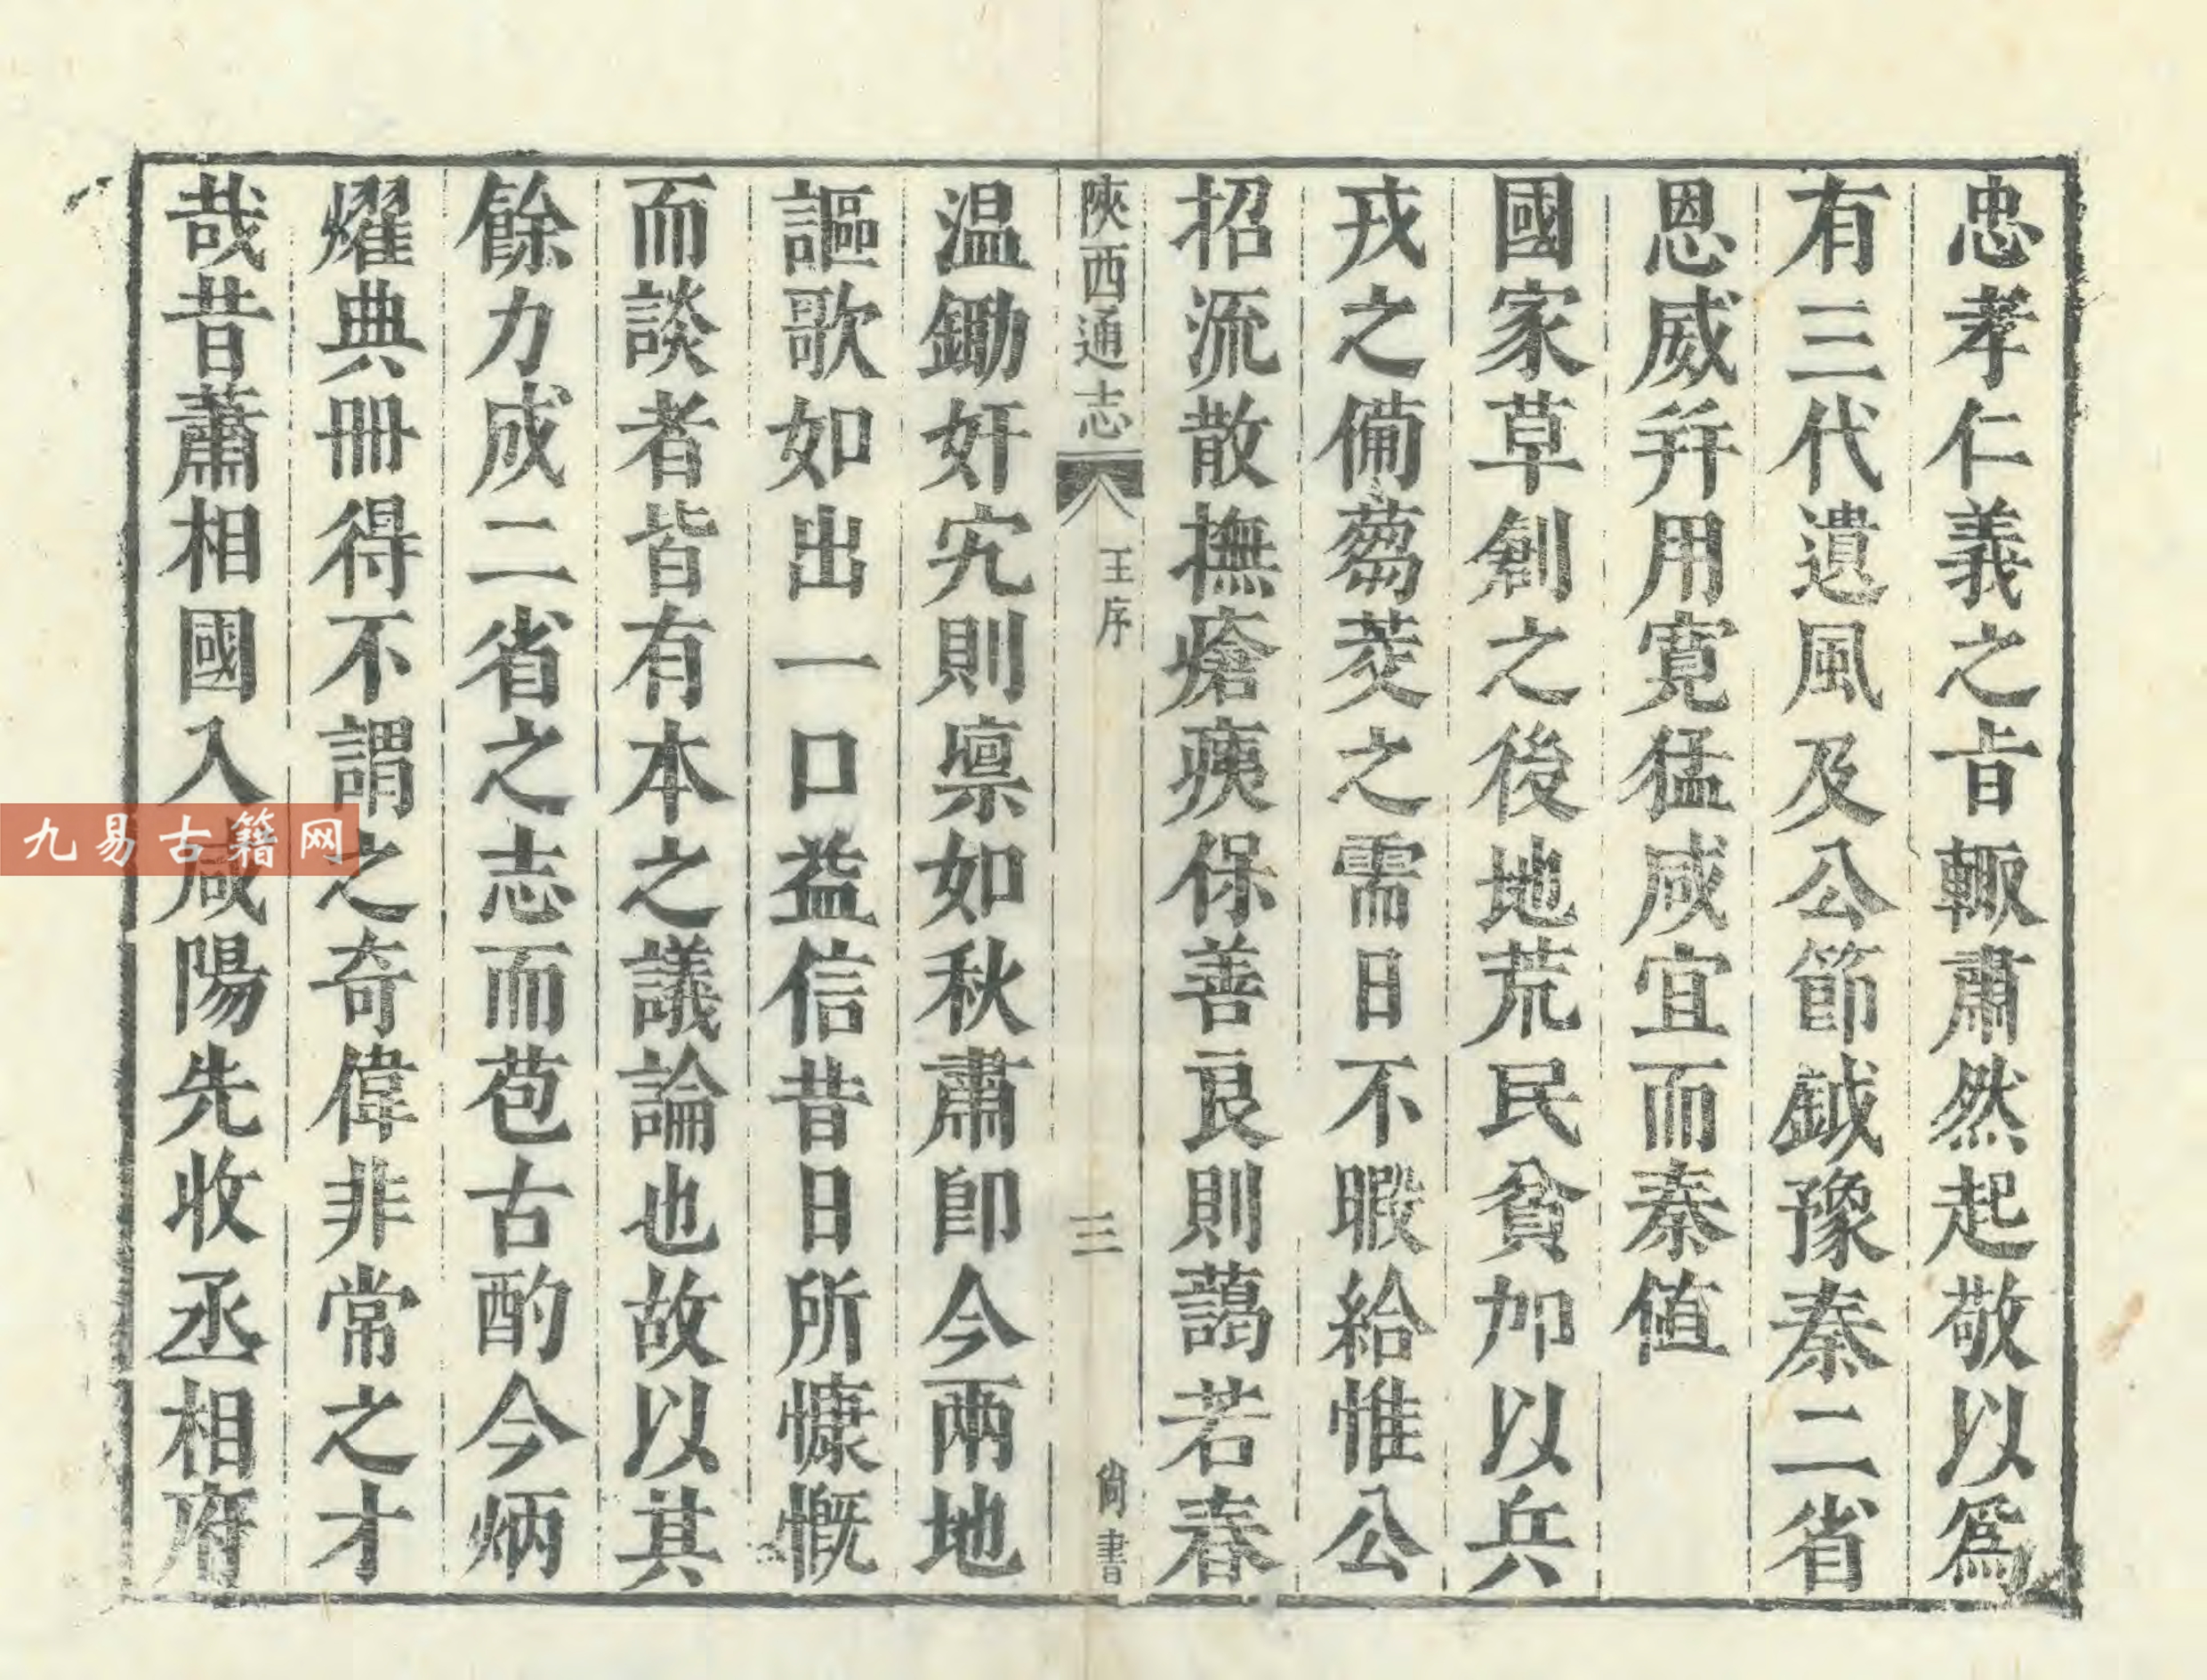 忠孝仁義之㫖輙肅然起敬以爲
有三代遺風及公節鉞豫秦二省
恩威幷用寛猛咸宜而秦值
國家草創之後地荒民貧加以兵
戎之備蒭茭之需日不暇給惟公
招流散撫瘡痍保善良則藹若春
陝西通志
王序
三
尙書
温鋤奸宄則凛如秋肅卽今兩地
謳歌如出一口益信昔日所慷慨
而談者皆有本之議論也故以其
餘力成二省之志而苞古酌今炳
燿典冊得不謂之奇偉非常之才
哉昔蕭相國入咸陽先收丞相府
九易古籍网